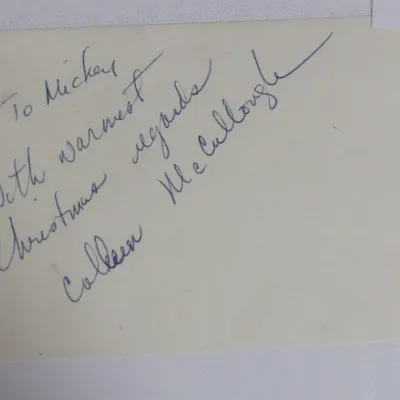 To Mickey
With warmest
Christmas regards
Colleen McCullough